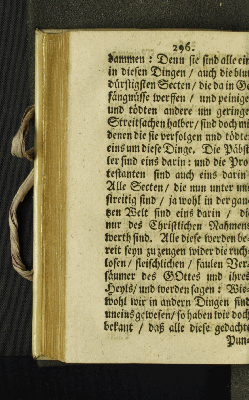 296.
dammen: Denn sie sind alle ein
in diesen Dingen / auch die blut
dürstigsten Secten / die da in Ge
fängnüsse werffen / und peinige
und tödten andere um geringe
Streitsachen halber / sind doch mi
denen die sie verfolgen und tödten
eins um diese Dinge. Die Päbst
ler sind eins darin: und die Pro
testanten sind auch eins darin
Alle Secten / die nun unter uns
streitig sind / ja wohl in der gan
tzen Welt sind eins darin / di
nur des Christlichen Nahmens
werth sind. Alle diese werden be
reit seyn zu zeugen wider die ruch
losen / fleischlichen / faulen Ver
säumer des GOttes und ihres
Heyls / und werden sagen: Wie
wohl wir in andern Dingen sind
uneins gewesen / so haben wir doch
bekant / daß alle diese gedachte
Pun-